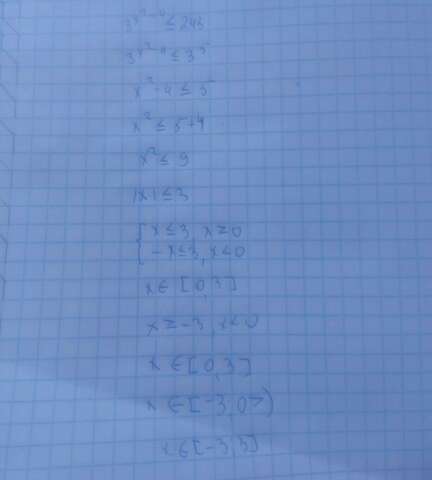 3^(x²-4) ≤ 243
3^(x²-4) ≤ 3⁵
x² - 4 ≤ 5
x² ≤ 5+4
x² ≤ 9
|x| ≤ 3
{ x ≤ 3, x ≥ 0
{ -x ≤ 3, x < 0
x ∈ [0,3]
x ≥ -3, x < 0
x ∈ [0,3]
x ∈ [-3,0>)
x ∈ [-3,3]